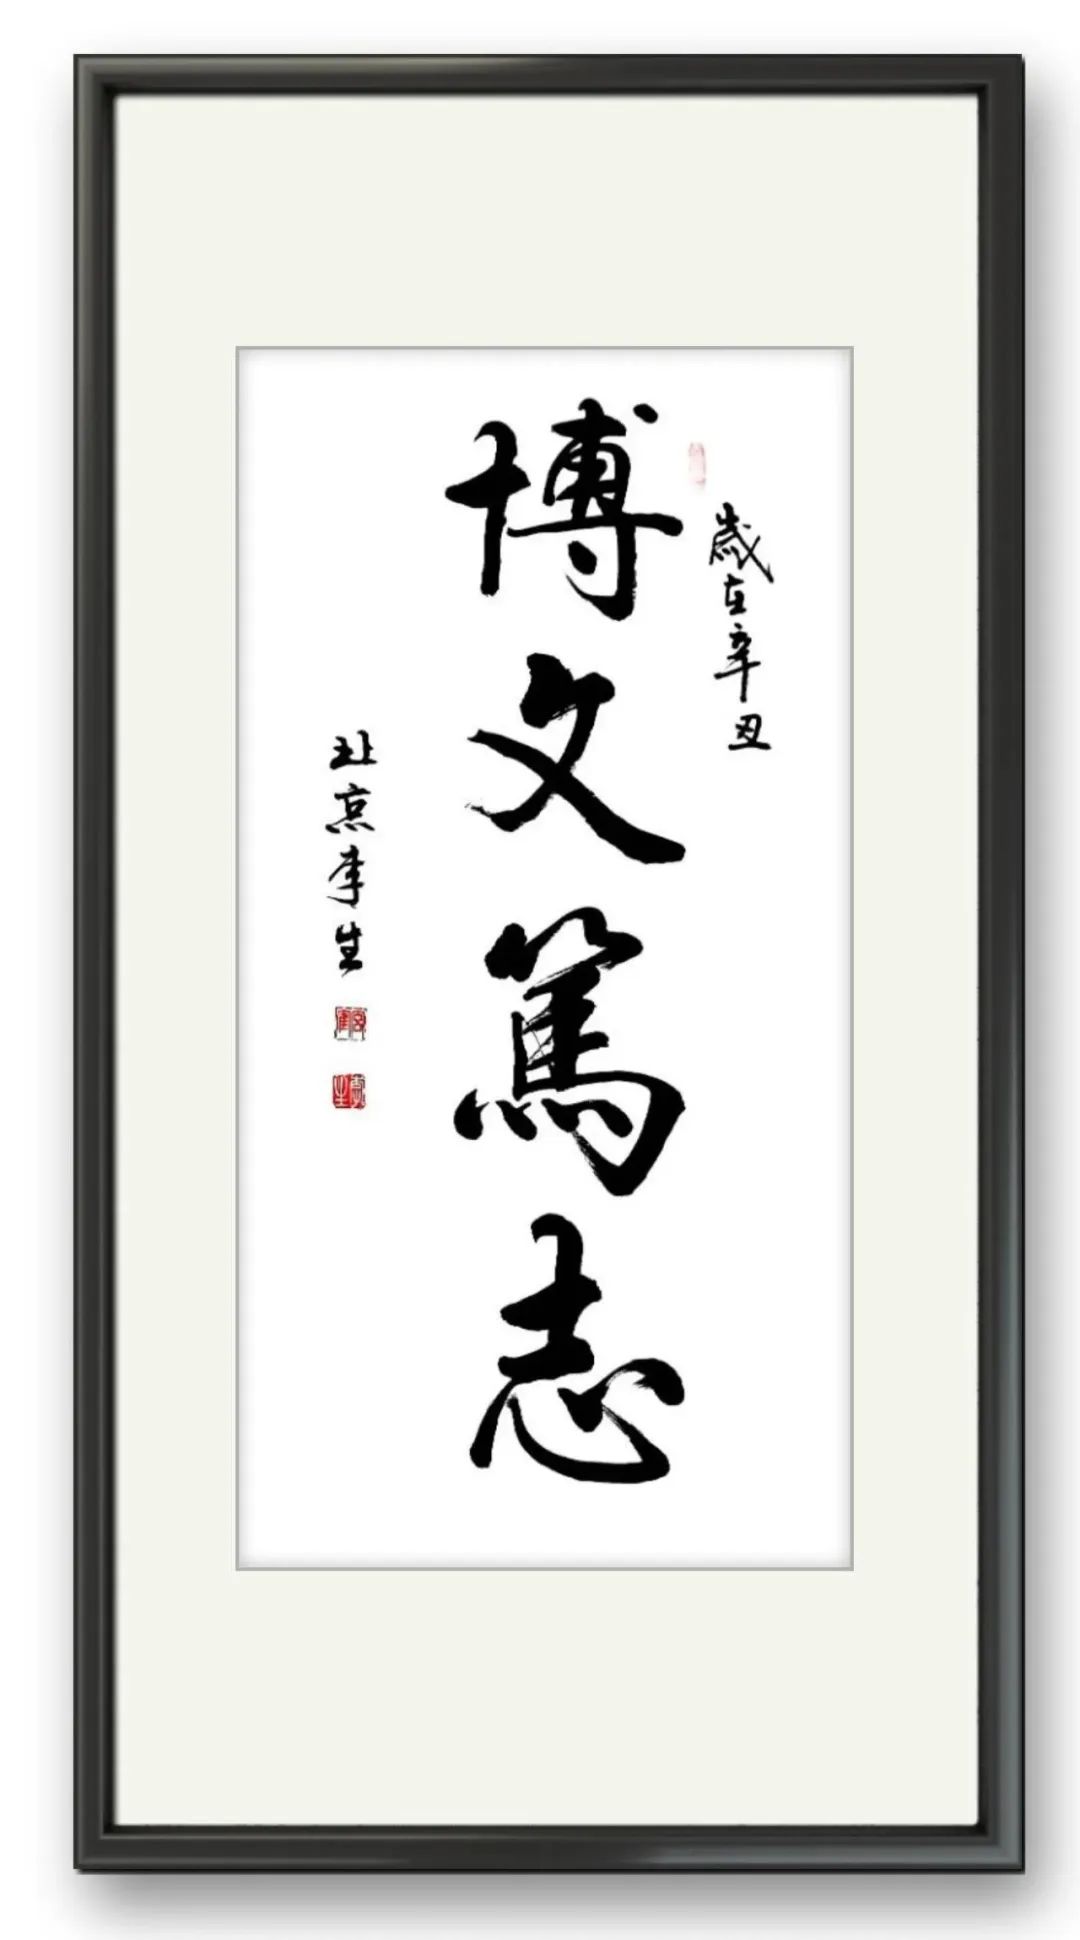 歲在辛丑
博文篤志
北京李生